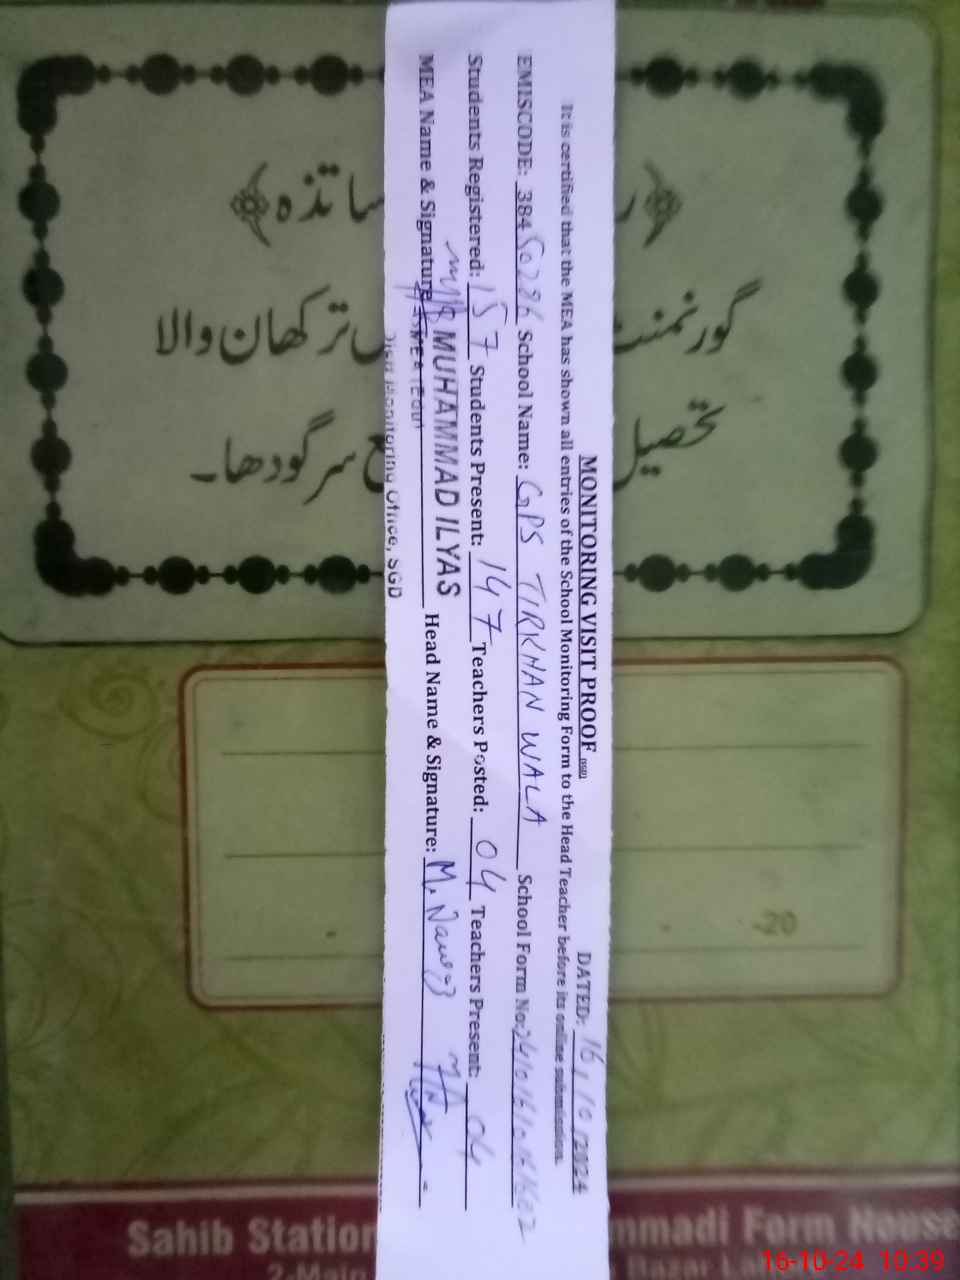 MONITORING VISIT PROOF (SGD) DATED: 16/10/2024
It is certified that the MEA has shown all entries of the School Monitoring Form to the Head Teacher before its online submission.
EMISCODE: 38450286 School Name: GPS TIRKHAN WALA School Form No:
Students Registered: 157 Students Present: 147 Teachers Posted: 04 Teachers Present: 04
MEA Name & Signature: MUHAMMAD ILYAS Head Name & Signature: M. Nawaz
Monitoring Office, SGD
ساتذہ
گورنمنٹ ترکھان والا
تحصیل سرگودھا۔
Sahib Station mmadi Form House
2-Main Bazar La
16-10-24 10:39